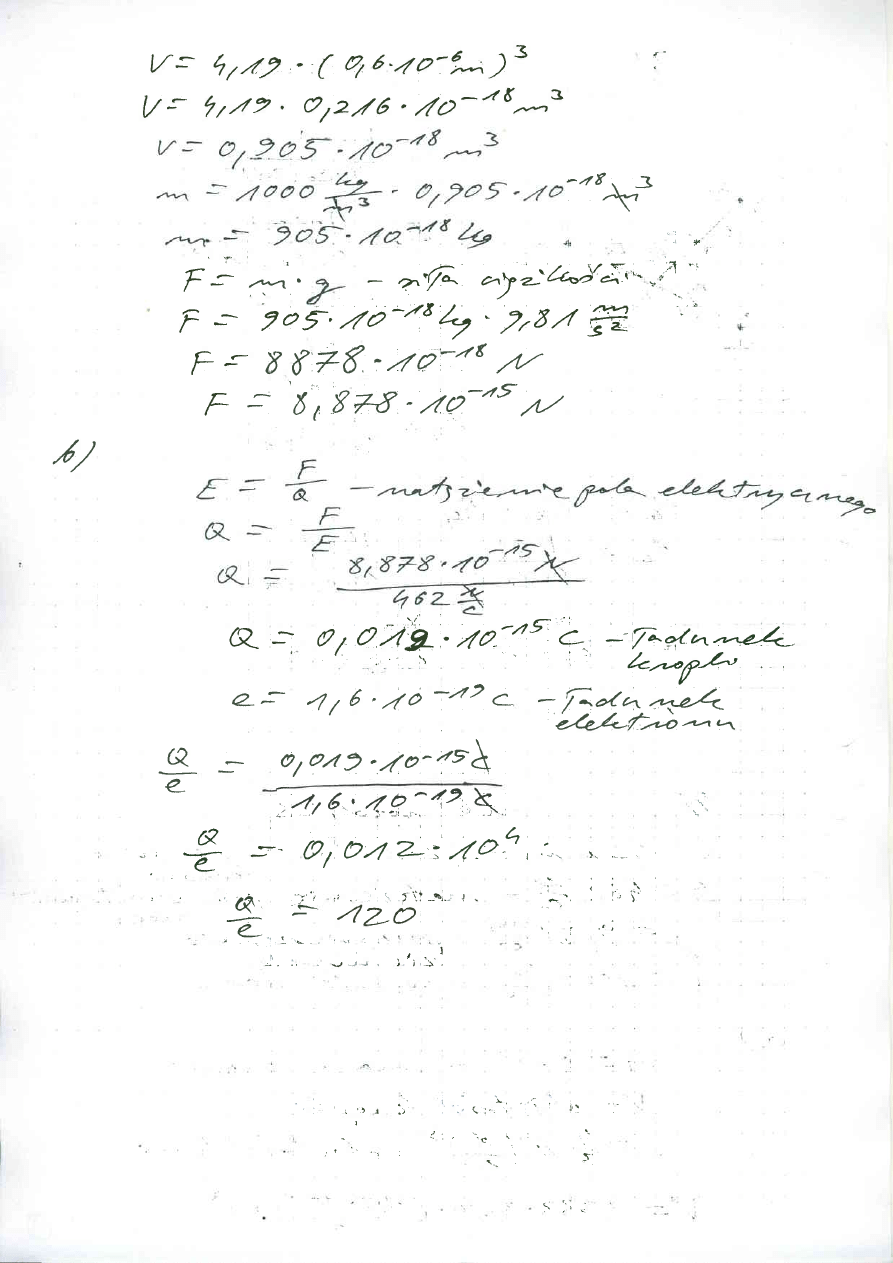 V = 4,19 · (0,6·10⁻⁶m)³
V = 4,19 · 0,216 · 10⁻¹⁸ m³
V = 0,905 · 10⁻¹⁸ m³
m = 1000 kg/m³ · 0,905 · 10⁻¹⁸ m³
m = 905 · 10⁻¹⁸ kg
F = m · g – siła ciężkości
F = 905 · 10⁻¹⁸ kg · 9,81 m/s²
F = 8878 · 10⁻¹⁸ N
F = 8,878 · 10⁻¹⁵ N
b)
E = F/Q – natężenie pola elektrycznego
Q = F/E
Q = 8,878 · 10⁻¹⁵ N / 462 N/C
Q = 0,019 · 10⁻¹⁵ C – ładunek
kropli
e = 1,6 · 10⁻¹⁹ C – ładunek
elektronu
Q/e = 0,019 · 10⁻¹⁵ C / 1,6 · 10⁻¹⁹ C
Q/e = 0,012 · 10⁴
Q/e = 120